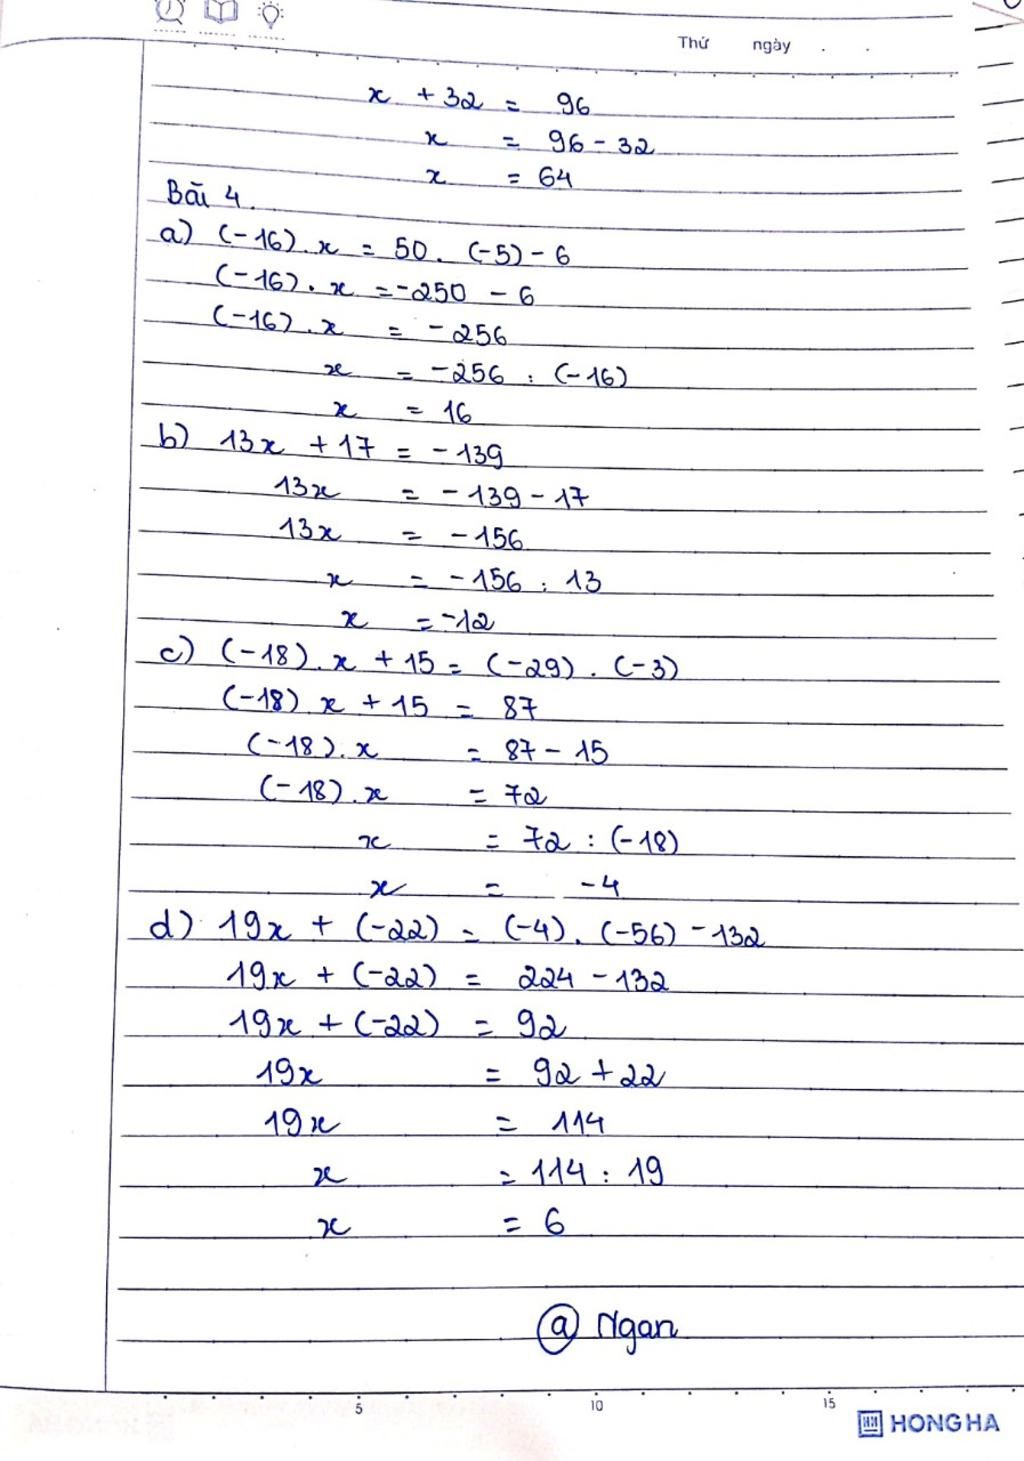 Thứ ngày . .
x + 32 = 96
x = 96 - 32
x = 64
Bài 4.
a) (-16). x = 50. (-5) - 6
(-16). x = -250 - 6
(-16). x = -256
x = -256 : (-16)
x = 16
b) 13x + 17 = -139
13x = -139 - 17
13x = -156
x = -156 : 13
x = -12
c) (-18). x + 15 = (-29). (-3)
(-18) x + 15 = 87
(-18). x = 87 - 15
(-18). x = 72
x = 72 : (-18)
x = -4
d) 19x + (-22) = (-4). (-56) - 132
19x + (-22) = 224 - 132
19x + (-22) = 92
19x = 92 + 22
19x = 114
x = 114 : 19
x = 6
@ Ngan
5 10 15
HONG HA